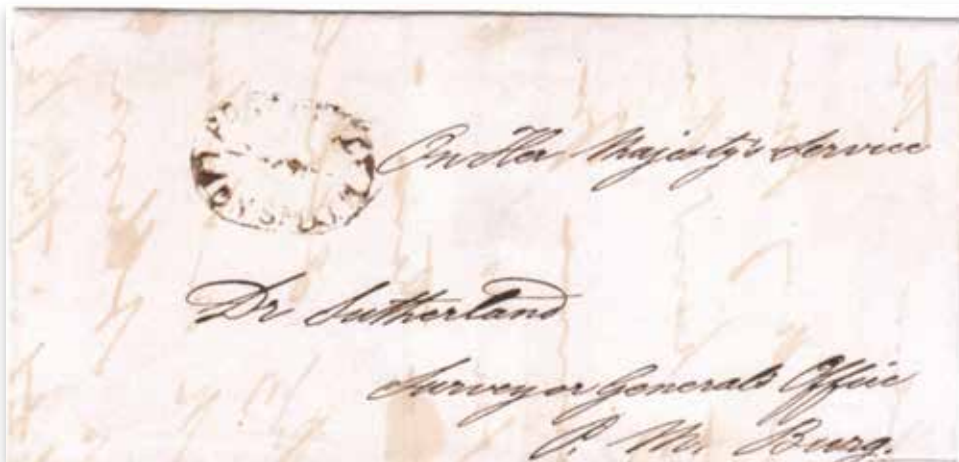 On Her Majesty's Service
Dr Sutherland
Surveyor Generals Office
P. M. Burg.